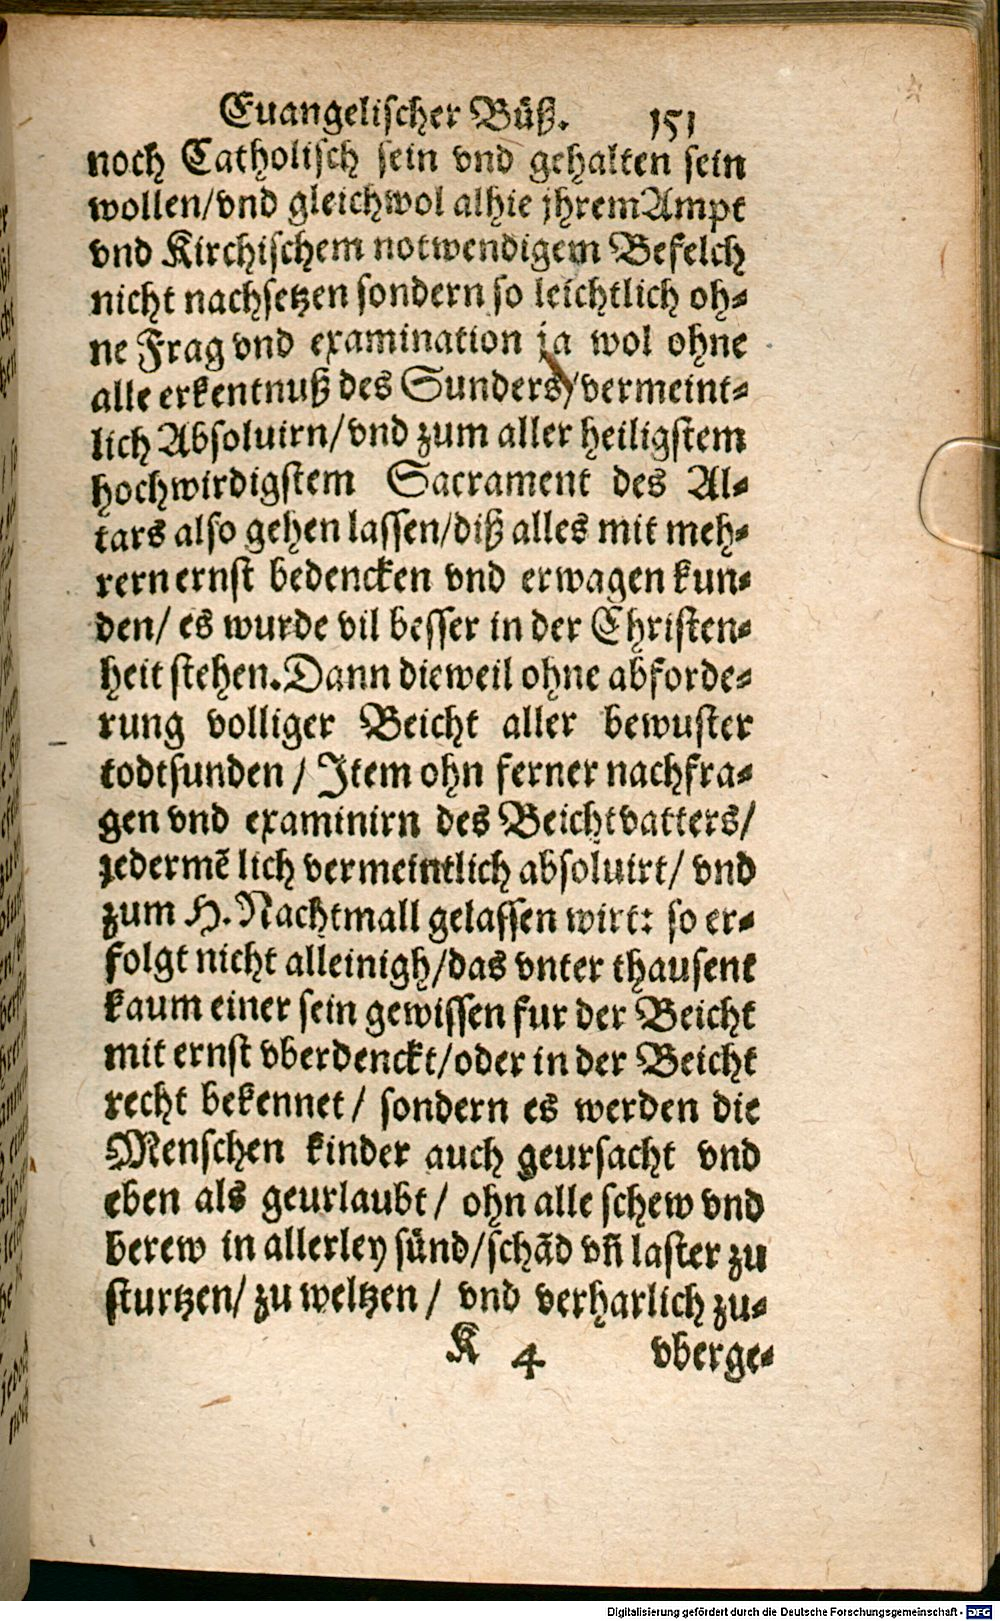 Euangelischer Büß. 151
noch Catholisch sein vnd gehalten sein
wollen/vnd gleichwol alhie jhrem Ampt
vnd Kirchischem notwendigem Befelch
nicht nachsetzen sondern so leichtlich oh-
ne Frag vnd examination ja wol ohne
alle erkentnuß des Sunders/vermeint-
lich Absoluirn/vnd zum aller heiligstem
hochwirdigstem Sacrament des Al-
tars also gehen lassen/diß alles mit meh-
rern ernst bedencken vnd erwagen kun-
den/ es wurde vil besser in der Christen-
heit stehen. Dann dieweil ohne abforde-
rung volliger Beicht aller bewuster
todtsunden / Item ohn ferner nachfra-
gen vnd examinirn des Beichtvatters/
jedermẽ lich vermeintlich absoluirt/ vnd
zum H. Nachtmall gelassen wirt: so er-
folgt nicht alleinigh/das vnter thausent
kaum einer sein gewissen fur der Beicht
mit ernst vberdenckt/oder in der Beicht
recht bekennet/ sondern es werden die
Menschen kinder auch geursacht vnd
eben als geurlaubt/ ohn alle schew vnd
berew in allerley sünd/schãd vñ laster zu
sturtzen/ zu weltzen / vnd verharlich zu-
K 4 vberge-
Digitalisierung gefördert durch die Deutsche Forschungsgemeinschaft - DFG